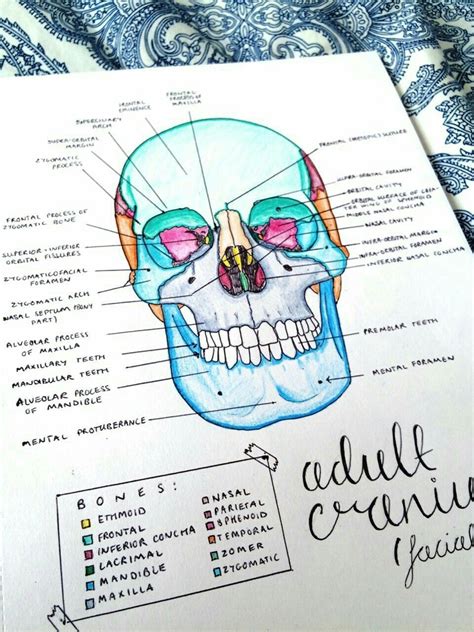 FRONTAL
PROCESS OF
MAXILLA
FRONTAL
EMINENCE
SUPERCILIARY
ARCH
SUPRA-ORBITAL
MARGIN
ZYGOMATIC
PROCESS
FRONTAL PROCESS OF
ZYGOMATIC BONE
SUPERIOR-INFERIOR
ORBITAL FISSURES
ZYGOMATICOFACIAL
FORAMEN
ZYGOMATIC ARCH
NASAL SEPTUM (BONY
PART)
ALVEOLAR PROCESS
OF MAXILLA
MAXILLARY TEETH
MANDIBULAR TEETH
ALVEOLAR PROCESS
OF MANDIBLE
MENTAL PROTUBERANCE
FRONTAL (METOPIC) SUTURE
SUPRA-ORBITAL FORAMEN
ORBITAL CAVITY
ORBITAL SURFACE OF GREA-
TER WING OF SPHENOID
MIDDLE NASAL CONCHA
NASAL CAVITY
INFRA-ORBITAL MARGIN
INFRA-ORBITAL FORAMEN
INFERIOR NASAL CONCHA
PREMOLAR TEETH
MENTAL FORAMEN
BONES:
ETHMOID
FRONTAL
INFERIOR CONCHA
LACRIMAL
MANDIBLE
MAXILLA
NASAL
PARIETAL
SPHENOID
TEMPORAL
ZOMER
ZYGOMATIC
adult
craniu
(facial